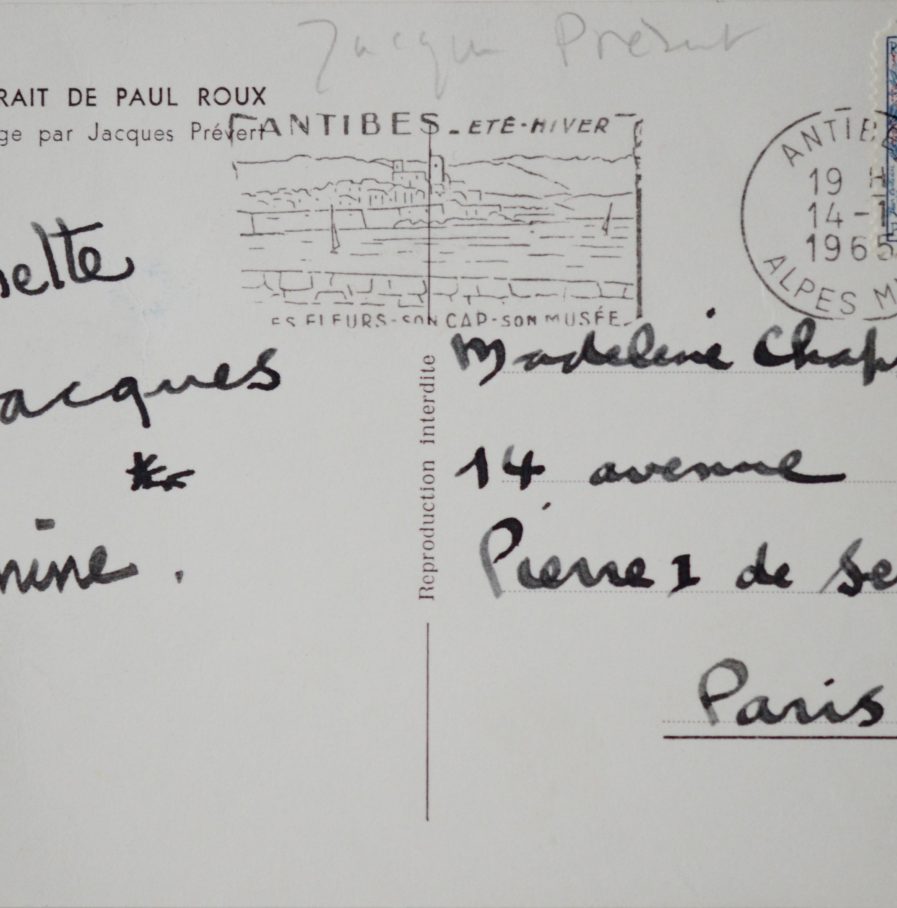 Jacques Prévert
RAIT DE PAUL ROUX
ge par Jacques Prévert
ANTIBES - ETÉ-HIVER
ES FLEURS-SON CAP-SON MUSÉE
ANTIB
19 H
14-1
1965
ALPES M
elte
acques
nine.
Reproduction interdite
Madeleine Chap
14 avenue
Pierre 1 de Se
Paris